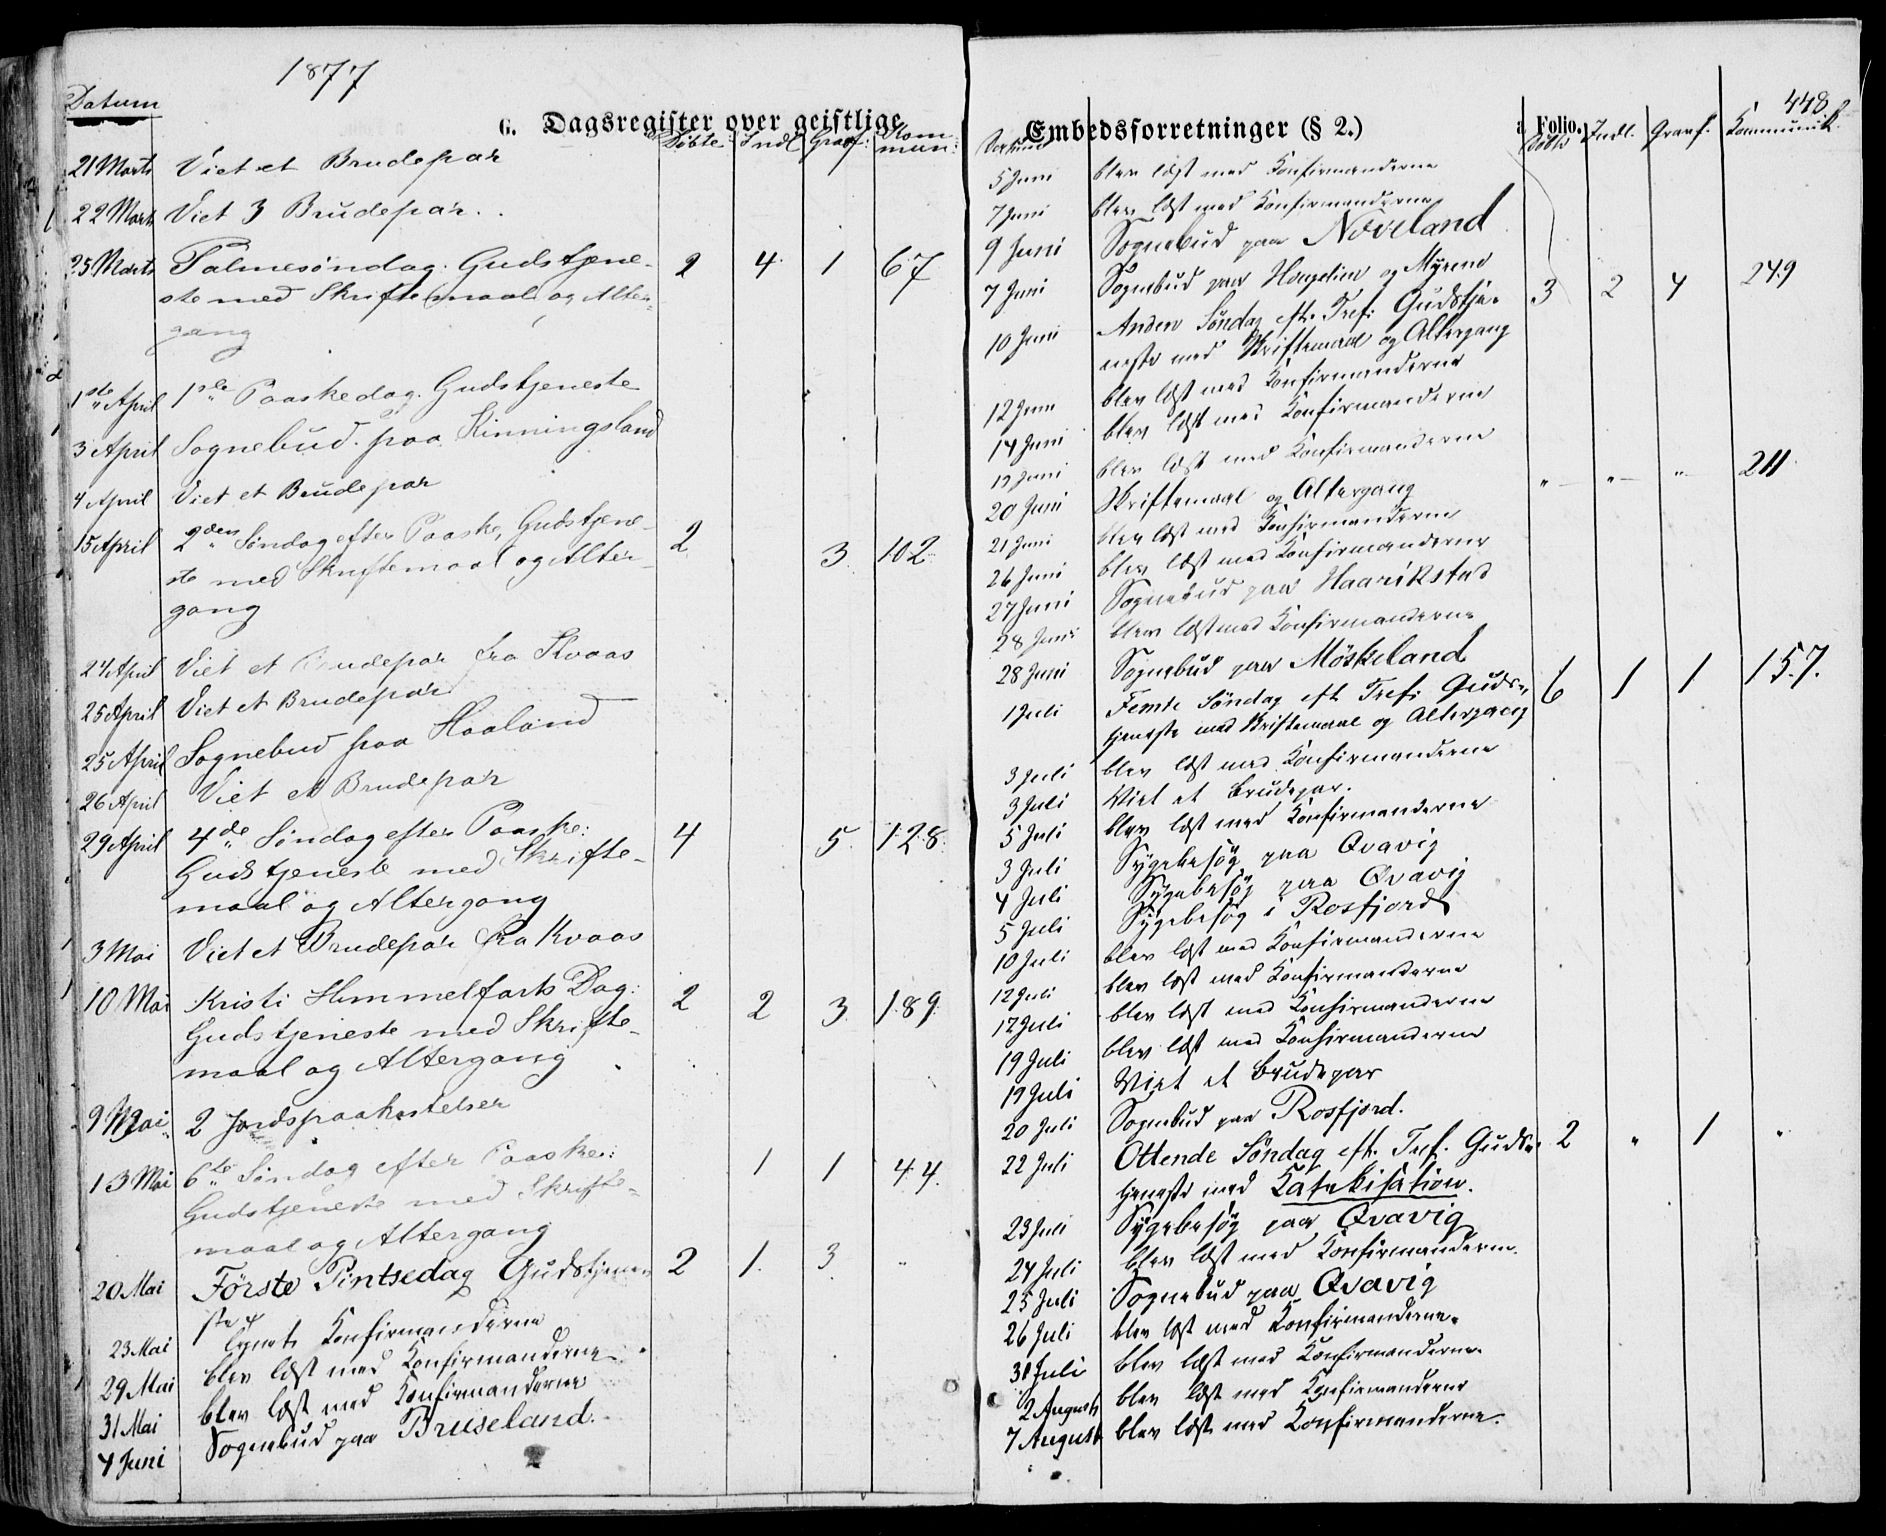 1877
Datum
6. Dagsregister over geistlige
Døbte Indl. Graaf: Kom mun:
21 Marts Viet et Brudepar
22 Marts Viet 3 Brudepar.
25 Marts Palmesøndag. Gudstjene- 2 4. 1 67
ste med Skriftemaal og Alter-
gang
1ste April 1ste Paaskedag. Gudstjeneste
3 April Sognebud paa Kinningsland
4 April Viet et Brudepar
15 April 2den Søndag efter Paaske, Gudstjene- 2 3. 102
ste med Skriftemaal og Alter-
gang
24 April Viet et Brudepar fra Kvaas
25 April Viet et Brudepar
25 April Sognebud paa Haaland
26 April Viet et Brudepar
29 April 4de Søndag efter Paaske: 4 5. 128
Gudstjeneste med Skrifte-
maal og Altergang
3 Mai Viet et Brudepar fra Kvaas
10 Mai Kristi Himmelfarts Dag: 2 2 3. 189
Gudstjeneste med Skrifte-
maal og Altergang
9 Mai 2 Jordspaakastelser
13 Mai 6te Søndag efter Paaske: 1 1 44.
Gudstjeneste med Skrifte-
maal og Altergang
20 Mai Første Pintsedag Gudstjene- 2 1. 3 "
ste
23 Mai Konfirmanderne
29 Mai blev læst med Konfirmanderne
31 Mai blev læst med Konfirmanderne
4 Juni Sognebud paa Bruseland.
448
Embedsforretninger (§ 2.)
a Folio.
Datum Døbte Indl. Graaf. Kommunik.
5 Juni blev læst med Konfirmanderne
7 Juni blev læst med Konfirmanderne
9 Juni Sognebud paa Növeland
7 Juni Sognebud paa og Myrene
10 Juni Anden Søndag eft. Tref: Gudstje- 3 2 4 249
neste med Skriftemaal og Altergang
12 Juni blev læst med Konfirmanderne
14 Juni blev læst med Konfirmanderne
19 Juni blev læst med Konfirmanderne
20 Juni Skriftemaal og Altergang " " " 211
21 Juni blev læst med Konfirmanderne
26 Juni blev læst med Konfirmanderne
27 Juni Sognebud paa Haarikstad
28 Juni blev læst med Konfirmanderne
28 Juni Sognebud paa Möskeland
1 Juli Femte Søndag eft Tref: Guds- 6 1 1 157.
tjeneste med Skriftemaal og Altergang
3 Juli blev læst med Konfirmanderne
3 Juli Viet et Brudepar.
5 Juli blev læst med Konfirmanderne
3 Juli Sygebesøg paa Qvavig
4 Juli Sygebesøg paa Qvavig
5 Juli Sygebesøg i Rosfjord
10 Juli blev læst med Konfirmanderne
12 Juli blev læst med Konfirmanderne
17 Juli blev læst med Konfirmanderne
19 Juli blev læst med Konfirmanderne
19 Juli Viet et Brudepar
20 Juli Sognebud paa Rosfjord.
22 Juli Ottende Søndag eft. Tref. Guds- 2 " 1 "
tjeneste med Katekisation.
23 Juli Sygebesøg paa Qvavig
24 Juli blev læst med Konfirmanderne.
25 Juli Sognebud paa Qvavig
26 Juli blev læst med Konfirmanderne.
31 Juli blev læst med Konfirmanderne
2 August blev læst med Konfirmanderne
7 August blev læst med Konfirmanderne.